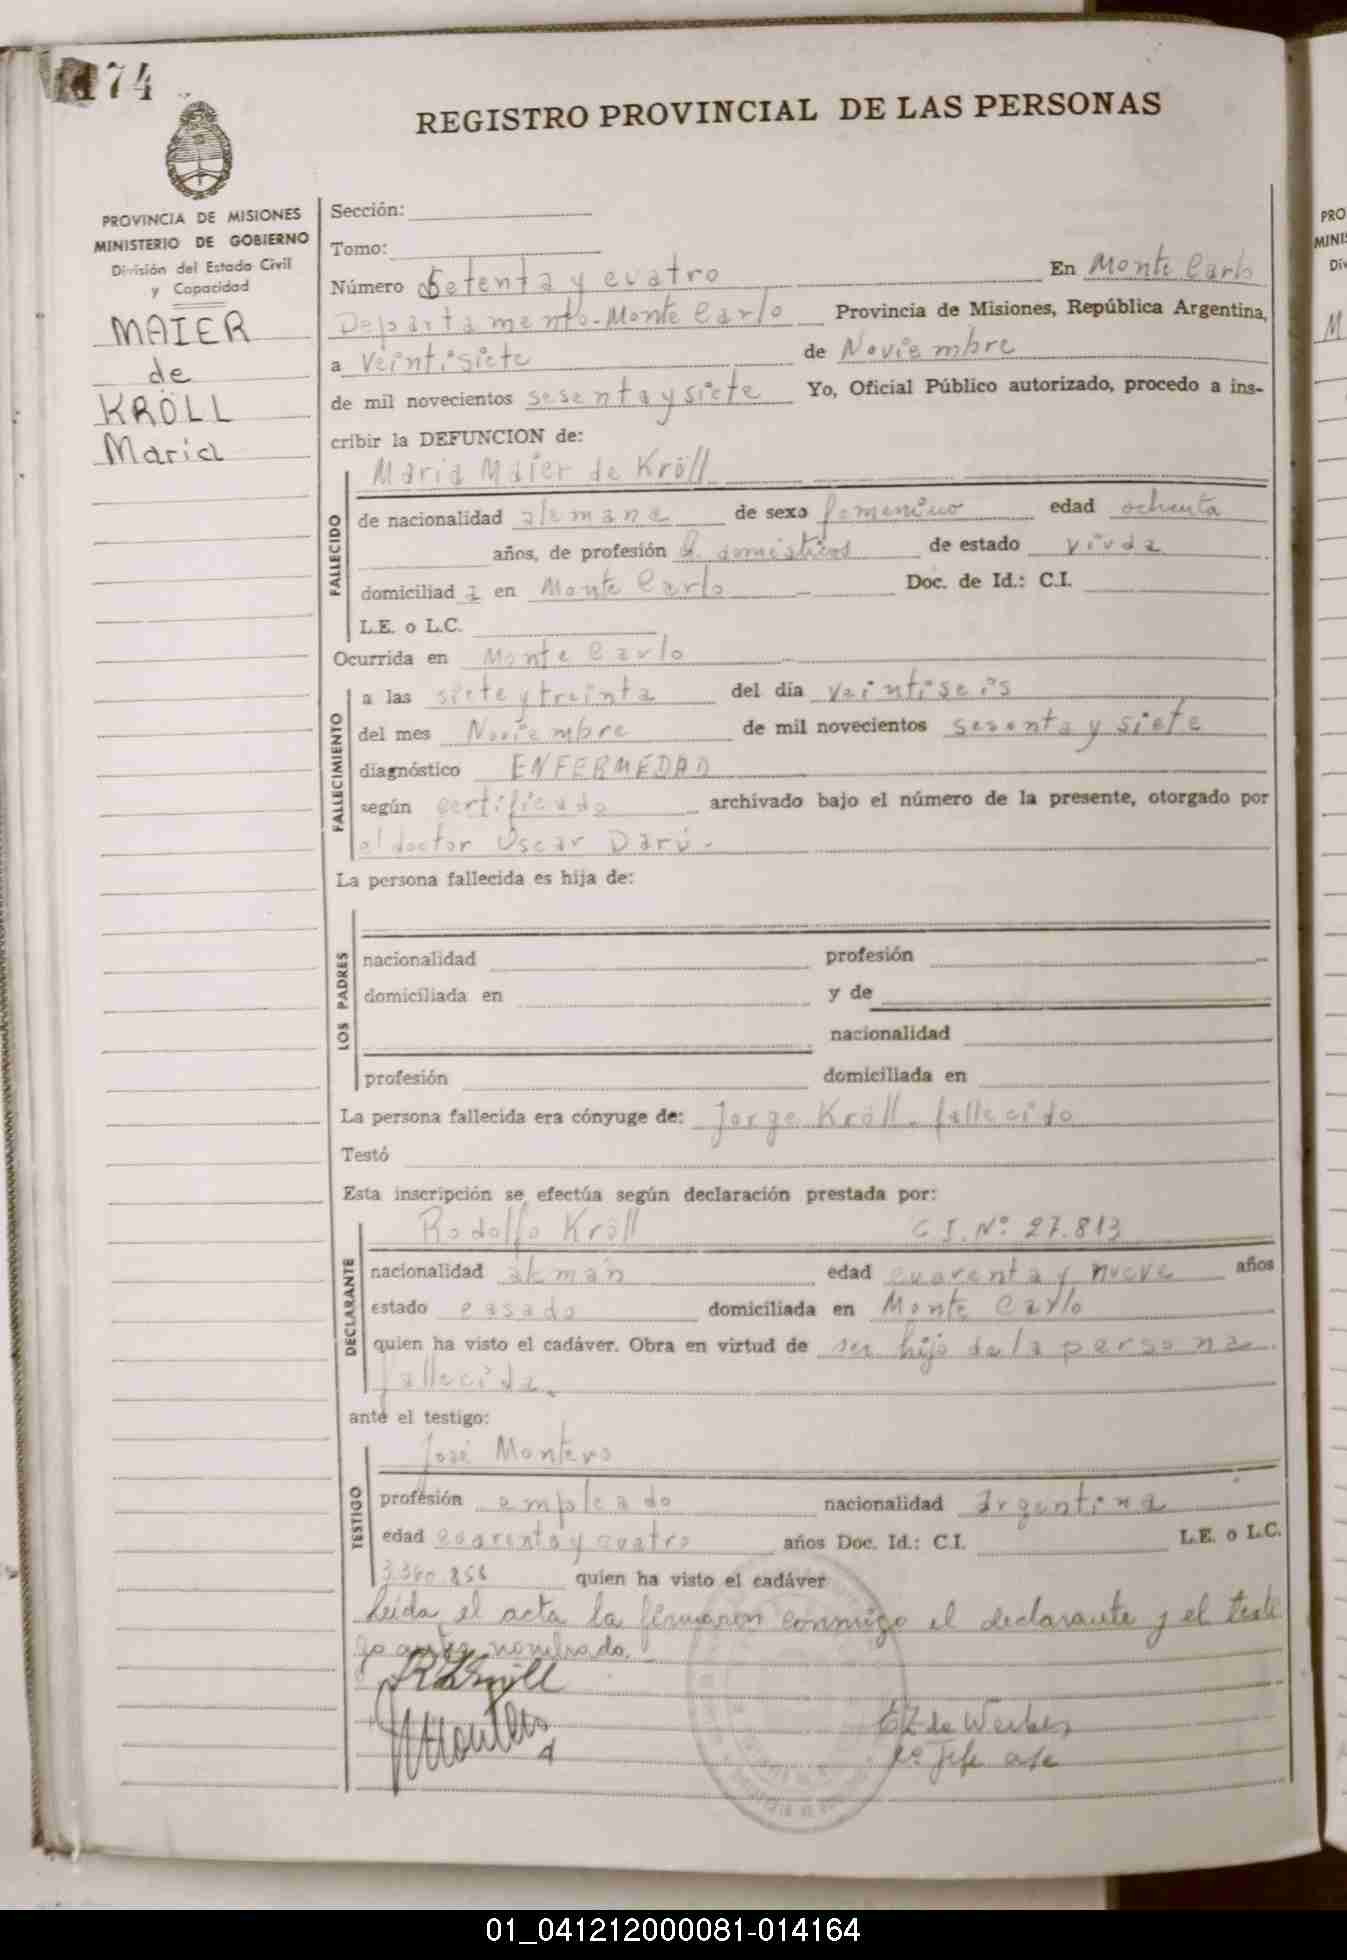 174
REGISTRO PROVINCIAL DE LAS PERSONAS
PROVINCIA DE MISIONES
MINISTERIO DE GOBIERNO
División del Estado Civil
y Capacidad
MAIER
de
KRÖLL
Maria
Sección:
Tomo:
Número Setenta y cuatro En Monte Carlo
Departamento-Monte Carlo Provincia de Misiones, República Argentina,
a Veintisiete de Noviembre
de mil novecientos sesenta y siete Yo, Oficial Público autorizado, procedo a ins-
cribir la DEFUNCION de:
Maria Maier de Kröll
FALLECIDO
de nacionalidad alemana de sexo femenino edad ochenta
años, de profesión Q. domésticos de estado viuda
domiciliad a en Monte Carlo Doc. de Id.: C.I.
L.E. o L.C.
Ocurrida en Monte Carlo
FALLECIMIENTO
a las siete y treinta del día veintiseis
del mes Noviembre de mil novecientos sesenta y siete
diagnóstico ENFERMEDAD
según certificado archivado bajo el número de la presente, otorgado por
el doctor Oscar Darú.
La persona fallecida es hija de:
LOS PADRES
nacionalidad profesión
domiciliada en y de
nacionalidad
profesión domiciliada en
La persona fallecida era cónyuge de: Jorge Kröll. fallecido
Testó
Esta inscripción se efectúa según declaración prestada por:
Rodolfo Kröll C.I. Nº 27.813
DECLARANTE
nacionalidad alemán edad cuarenta y nueve años
estado casado domiciliada en Monte Carlo
quien ha visto el cadáver. Obra en virtud de ser hijo de la persona
fallecida.
ante el testigo:
José Montero
TESTIGO
profesión empleado nacionalidad argentina
edad cuarenta y cuatro años Doc. Id.: C.I. L.E. o L.C.
3.360.856 quien ha visto el cadáver
Leida el acta la firmaron conmigo el declarante y el testi
go antes nombrado.
R Kröll
Montero
PRO
MINI
Div
M
01_041212000081-014164